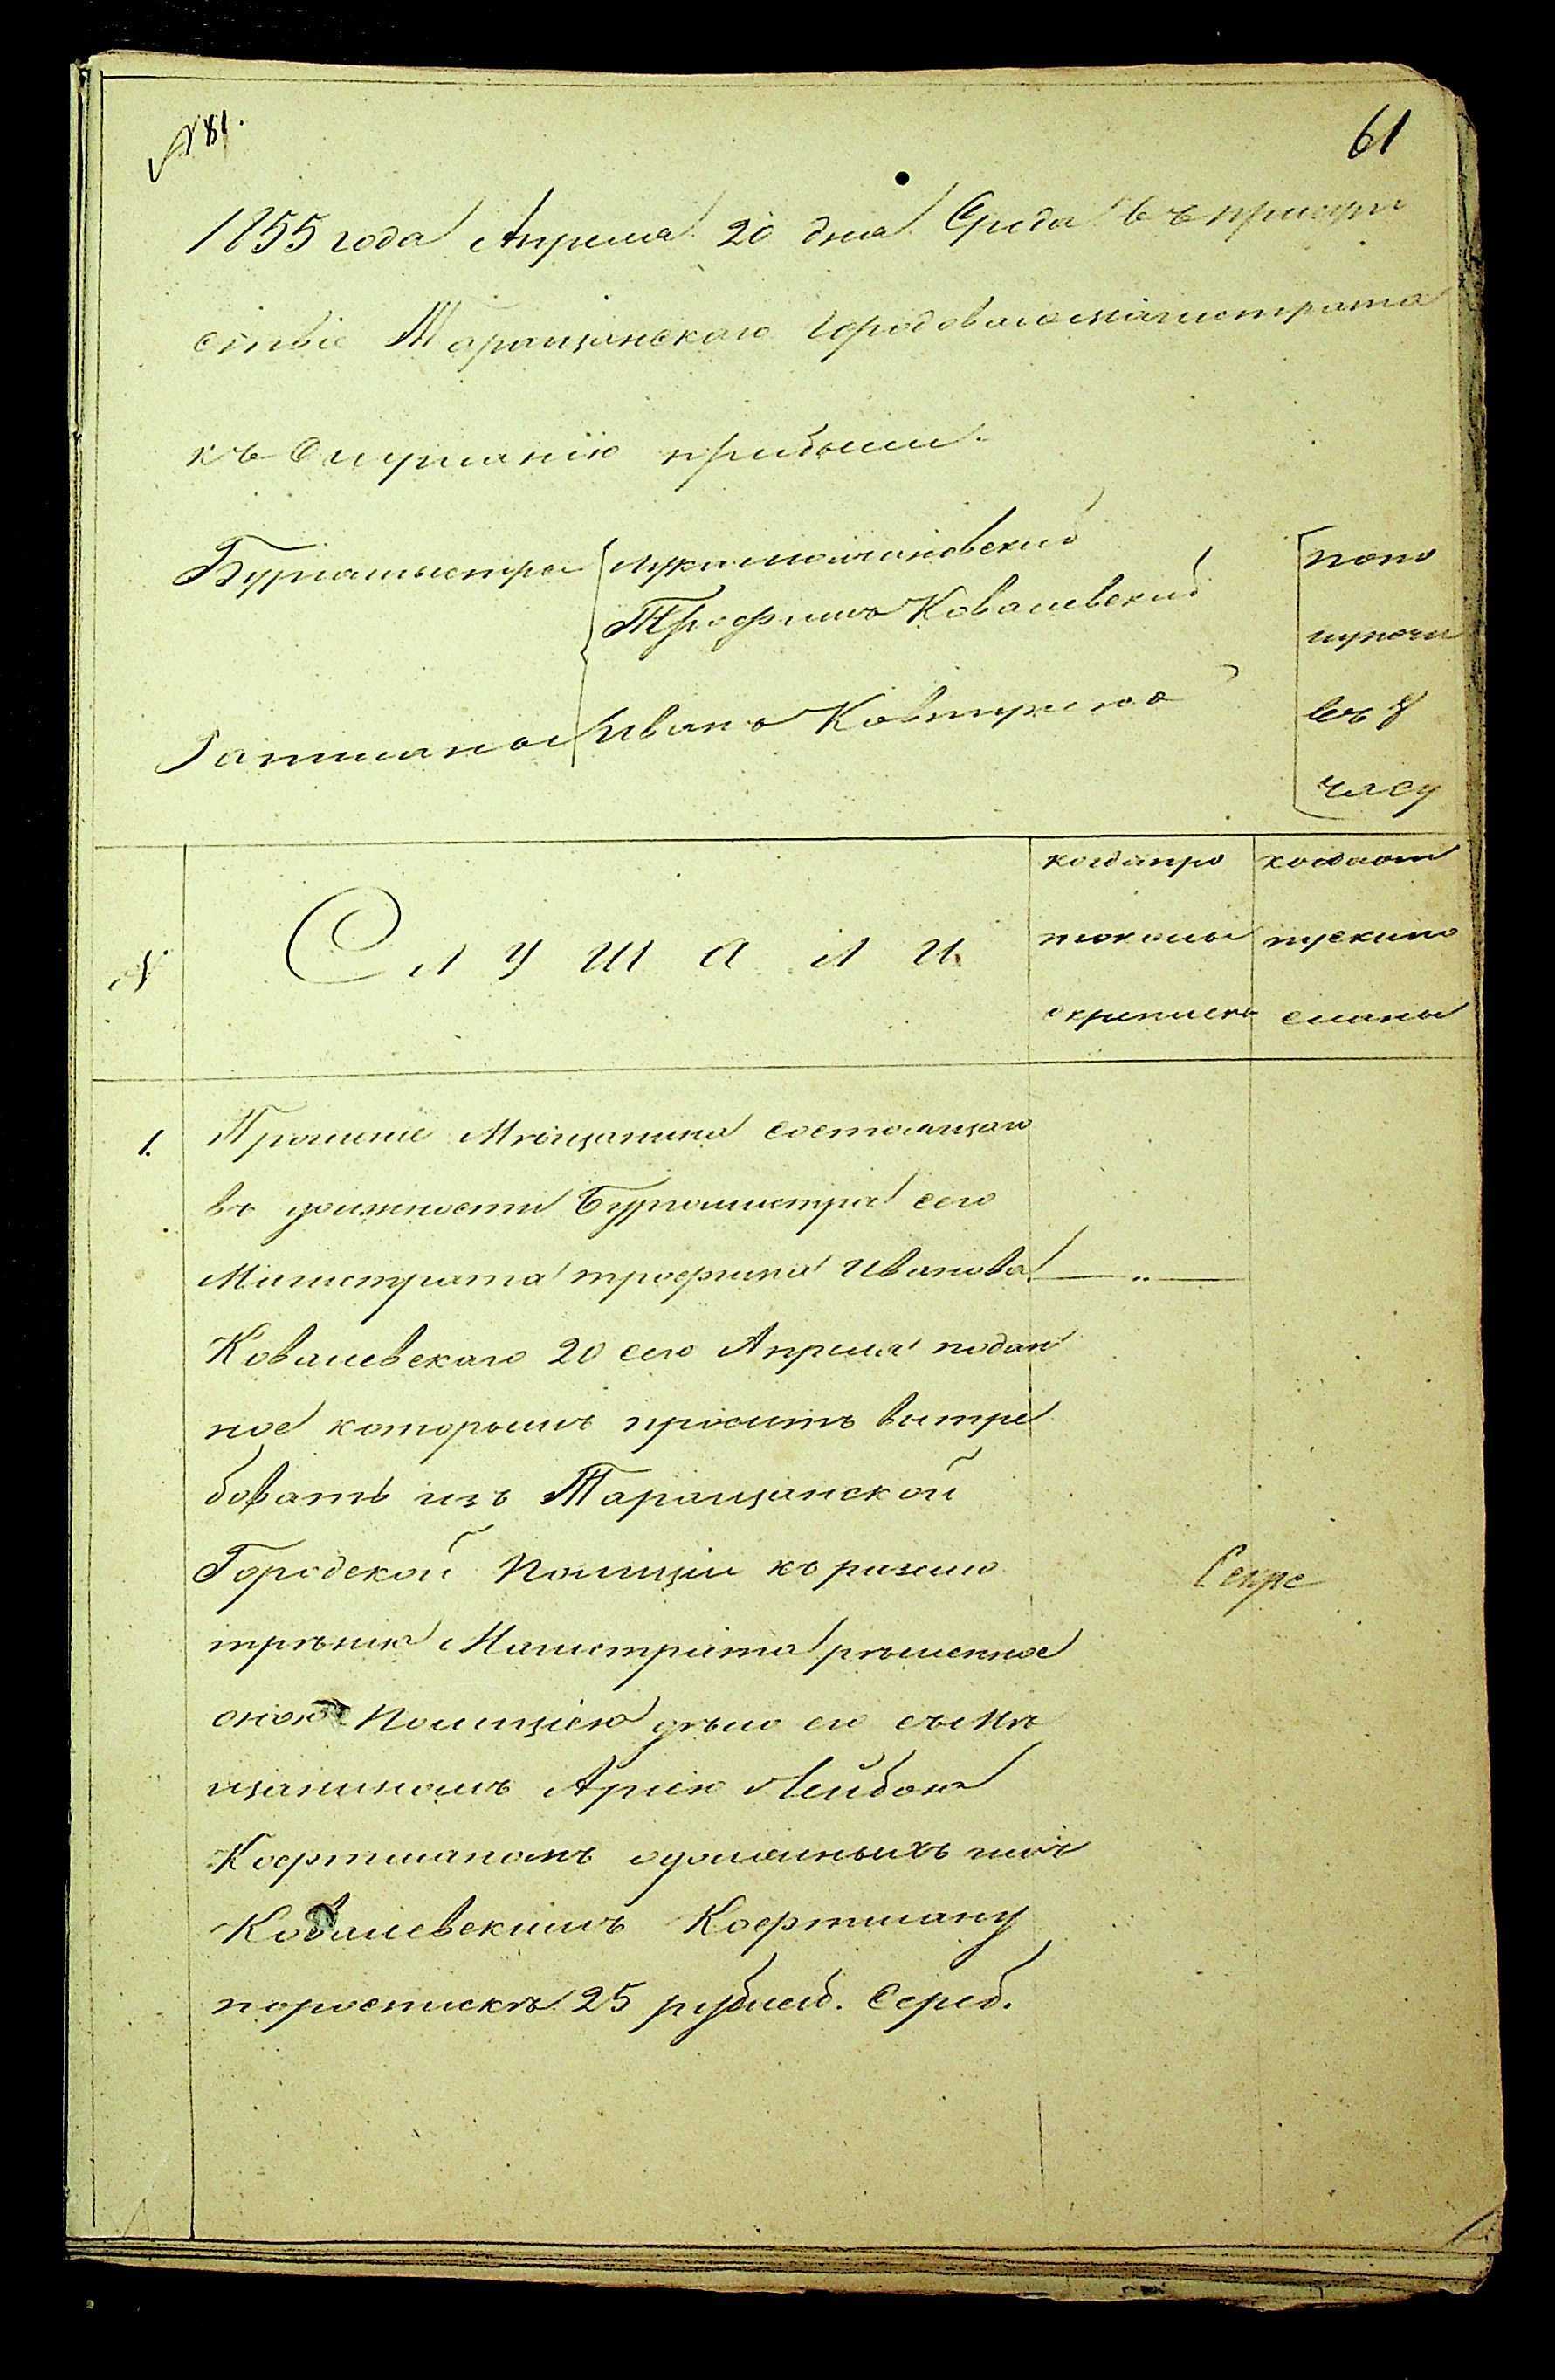 № 81.
61
1855 года Апреля 20 дня Среда въ присут
ствіе Таращанскаго Городоваго магистрата
къ слушанію прибыли.
Бургомыстры
Лука
Трофимъ Ковалевскій
Ратманъ Иванъ
попо
лудни
въ 8
часу
№
Слушали
когда про
токолы
скреплены
когда от
пуск
сланы
1.
Прошеніе Мѣщанина состоящаго
въ должности Бургомистра сего
Магистрата трофима Иванова
Ковалевскаго 20 сего Апреля подан
ное которымъ проситъ вытре
бовать изъ Таращанской
Городской Полиціи къ разсмо
трѣнію Магистрата рѣшенное
оною Полиціею дѣло его съ Мѣ
щаниномъ Аріею Лейбою
Кофтманомъ одолженныхъ имъ
Ковалевскимъ Кофтману
поросписке 25 рублей. Сереб.
Секре